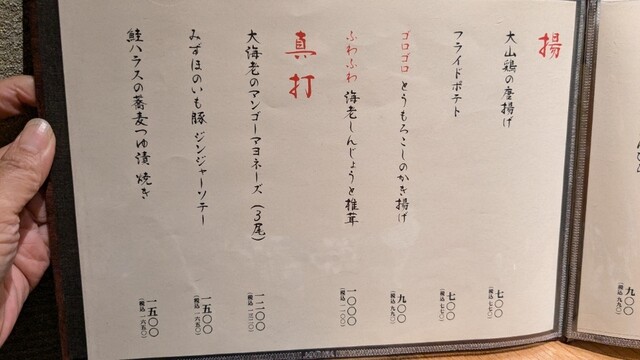 揚
大山鶏の唐揚げ
七〇〇
(税込 七七〇)
フライドポテト
七〇〇
(税込 七七〇)
ゴロゴロ とうもろこしのかき揚げ
九〇〇
(税込 九九〇)
ふわふわ 海老しんじょうと椎茸
一〇〇〇
(税込 一一〇〇)
真打
大海老のマンゴーマヨネーズ (3尾)
一二〇〇
(税込 一三二〇)
みずほのいも豚 ジンジャーソテー
一五〇〇
(税込 一六五〇)
鮭ハラスの蕎麦つゆ漬 焼き
一五〇〇
(税込 一六五〇)
九〇〇
(税込 九九〇)